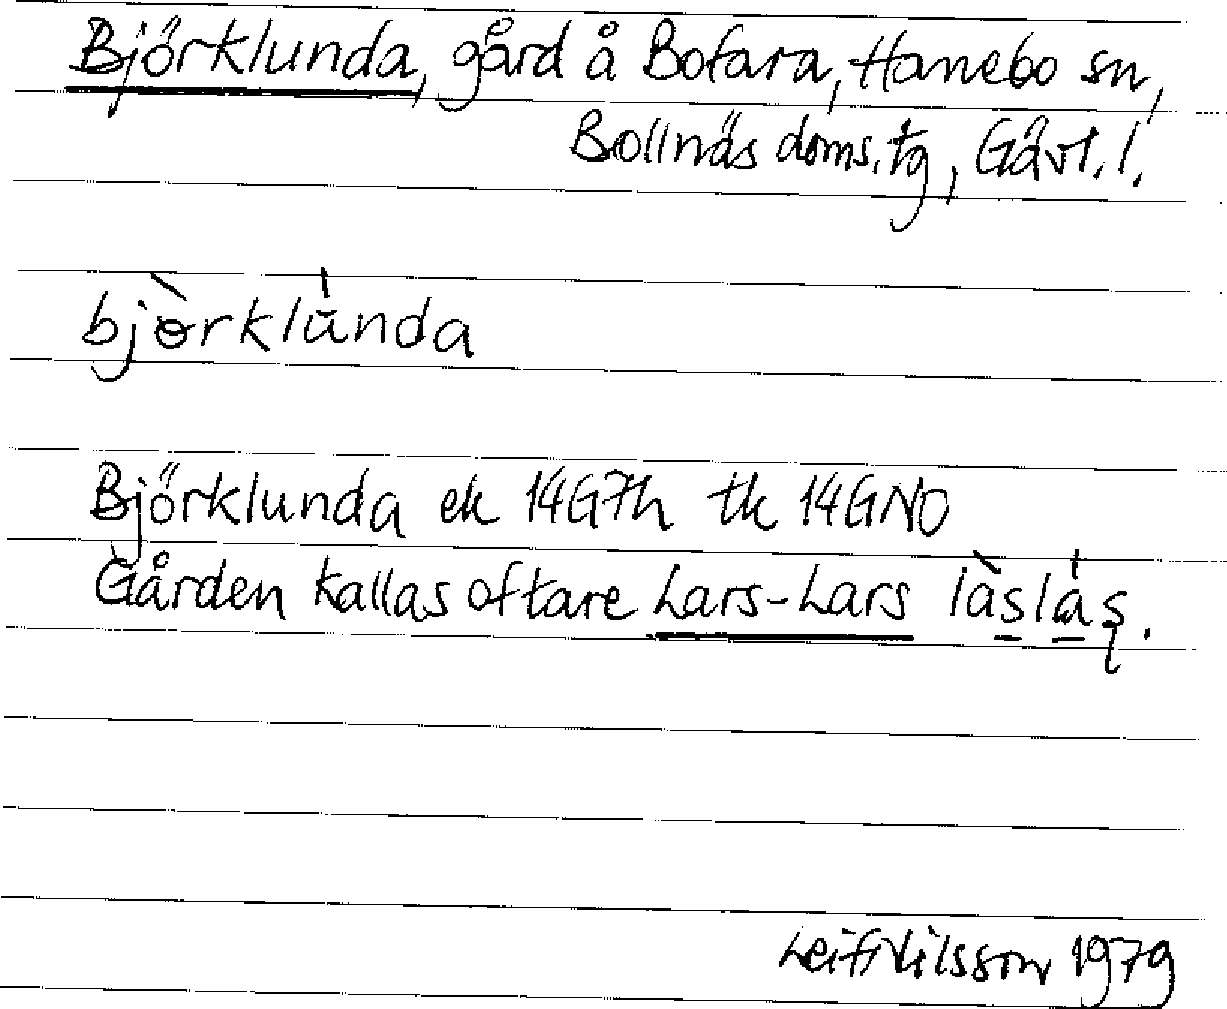 Björklunda, gård å Bofara, Hanebo sn,
Bollnäs doms.tg, Gävl. l.
bjɵ̀rklúnda
Björklunda ek 14G7h tk 14GNO
Gården kallas oftare Lars-Lars làslás.
Leif Nilsson 1979